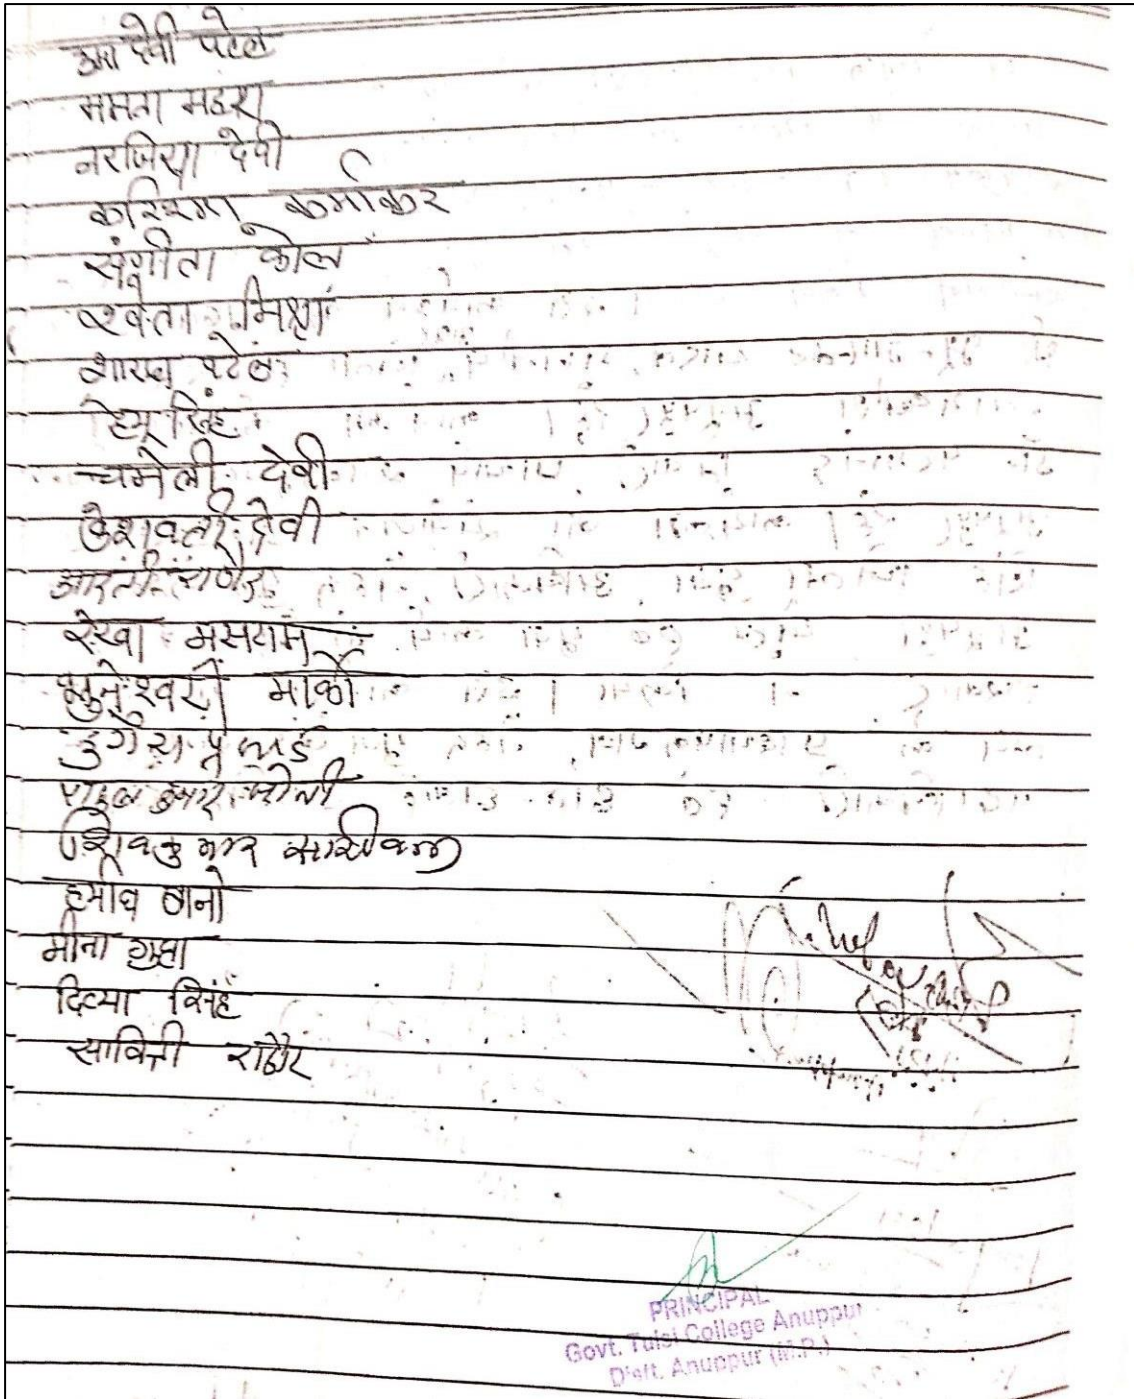 उमा देवी पटेल
ममता महरा
नरजिया देवी
करिश्मा कर्माकर
संगीता कोल
श्वेता मिश्रा
शारदा पटेल
हेमू सिंह
चमेली देवी
केशवती देवी
आरती राठौर
रेखा मसराम
भुनेश्वरी मार्को
दुर्गेश
राहुल कुमार सोनी
शिवकुमार
हमीदा बानो
मीना गुप्ता
दिव्या सिंह
सावित्री राठौर
PRINCIPAL
Govt. Tulsi College Anuppur
Distt. Anuppur (M.P.)